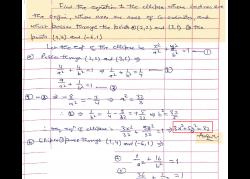 Find the equation to the ellipse whose centre is
the origin, whose axes are the axes of co-ordinate, and
which passes through the points (a) (2,2) and (3,1) (b) the
points (1,4) and (-6,1)
Let the eqn of the ellipse is x²/a² + y²/b² = 1 — (1)
(a) Passes through (2,2) and (3,1) ⇒
4/a² + 4/b² = 1 ⇒ 1/a² + 1/b² = 1/4 — (2)
9/a² + 1/b² = 1 — (3)
(3) - (2) ⇒ 8/a² = 3/4 ⇒ a² = 32/3
⇒ b² = 32/5
∴ eqn of ellipse 3x²/32 + 5y²/32 = 1 ⇒ 3x²+5y² = 32
Answer
(b) Ellipse passes through (1,4) and (-6,1)
1/a² + 16/b² = 1
36/a² + 1/b² = 1